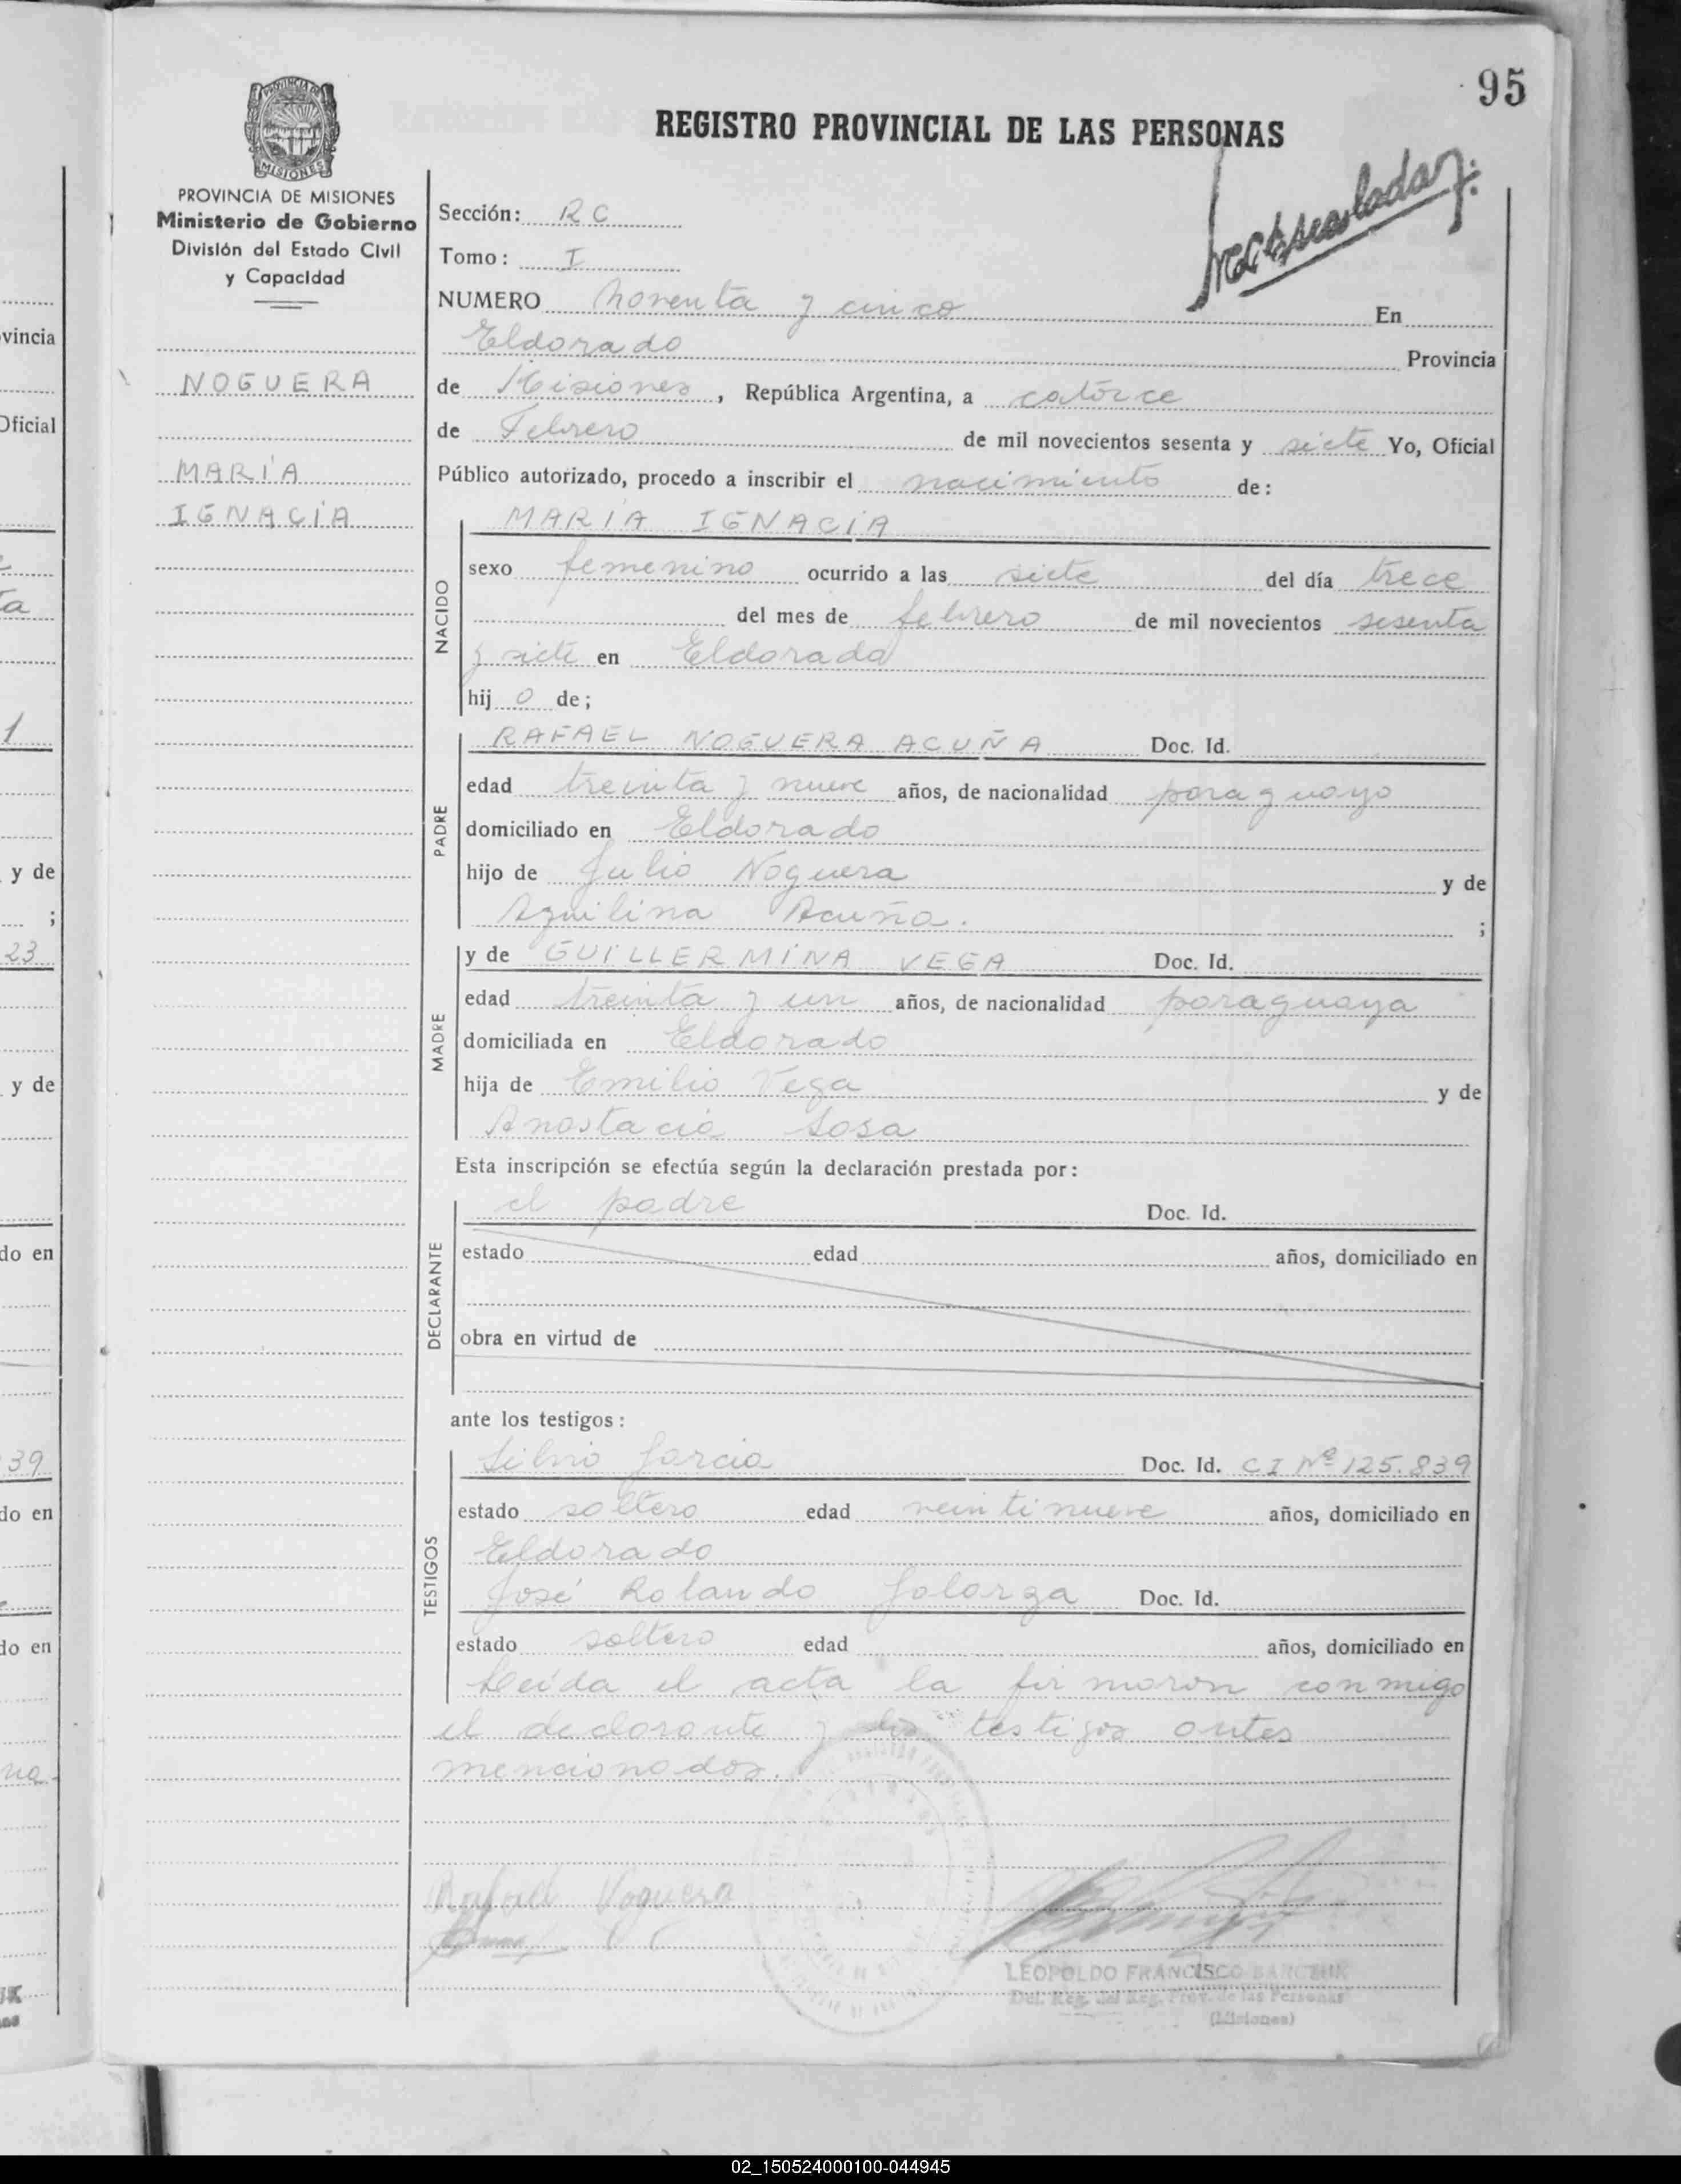 95
REGISTRO PROVINCIAL DE LAS PERSONAS
PROVINCIA DE MISIONES
Ministerio de Gobierno
División del Estado Civil
y Capacidad
NOGUERA
MARÍA
IGNACIA
Sección: RC
Tomo: I
NUMERO noventa y cinco En
Eldorado Provincia
de Misiones, República Argentina, a catorce
de Febrero de mil novecientos sesenta y siete Yo, Oficial
Público autorizado, procedo a inscribir el nacimiento de:
NACIDO
MARIA IGNACIA
sexo femenino ocurrido a las siete del día trece
del mes de febrero de mil novecientos sesenta
y siete en Eldorado
hij o de;
PADRE
RAFAEL NOGUERA ACUÑA Doc. Id.
edad treinta y nueve años, de nacionalidad paraguayo
domiciliado en Eldorado
hijo de Julio Noguera y de
Aquilina Acuña. ;
MADRE
y de GUILLERMINA VEGA Doc. Id.
edad treinta y un años, de nacionalidad paraguaya
domiciliada en Eldorado
hija de Emilio Vega y de
Anastacia Sosa
Esta inscripción se efectúa según la declaración prestada por:
DECLARANTE
el padre Doc. Id.
estado edad años, domiciliado en
obra en virtud de
ante los testigos:
TESTIGOS
Silvio Garcia Doc. Id. CI Nº 125.839
estado soltero edad veintinueve años, domiciliado en
Eldorado
José Rolando Doc. Id.
estado soltero edad años, domiciliado en
Leída el acta la firmaron conmigo
el declarante y los testigos antes
mencionados.
Rafael Noguera
LEOPOLDO FRANCISCO
Del. Reg. del Reg. Prov. de las Personas
(Misiones)
vincia
Oficial
ta
1
y de
;
23
y de
do en
39
do en
do en
na
02_150524000100-044945